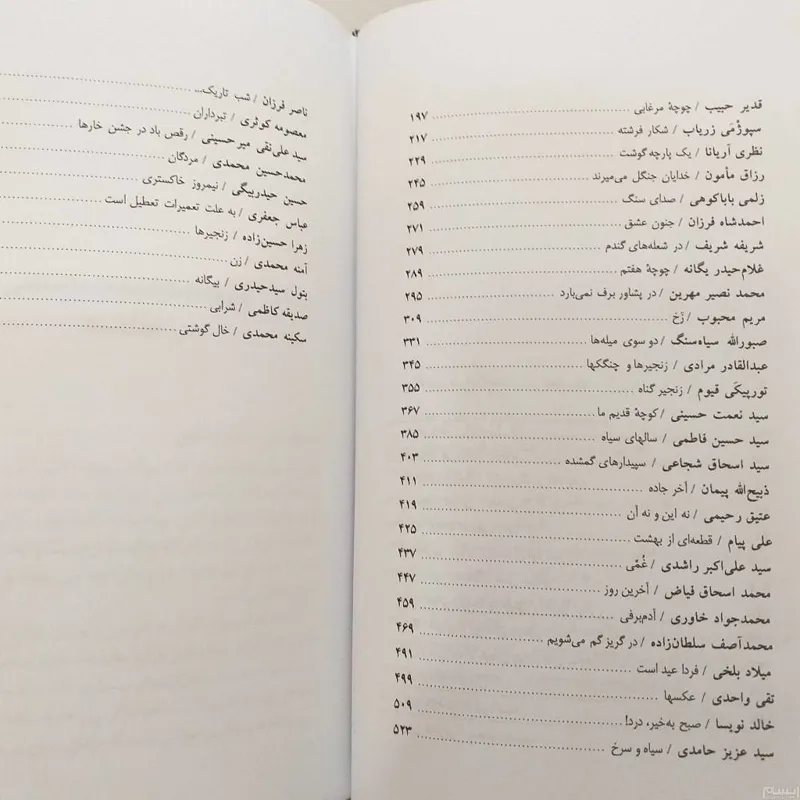 قدیر حبیب / چوچهٔ مرغابی ........ ۱۹۷
سپوژمَی زریاب / شکار فرشته ........ ۲۱۷
نظری آریانا / یک پارچه گوشت ........ ۲۲۹
رزاق مأمون / خدایان جنگل می‌میرند ........ ۲۴۵
زلمی باباکوهی / صدای سنگ ........ ۲۵۹
احمدشاه فرزان / جنون عشق ........ ۲۷۱
شریفه شریف / در شعله‌های گندم ........ ۲۷۹
غلام‌حیدر یگانه / چوچهٔ هفتم ........ ۲۸۹
محمد نصیر مهرین / در پشاور برف نمی‌بارد ........ ۲۹۵
مریم محبوب / زَخ ........ ۳۰۹
صبورالله سیاه‌سنگ / دو سوی میله‌ها ........ ۳۳۱
عبدالقادر مرادی / زنجیرها و چنگکها ........ ۳۴۵
تورپیکَی قیوم / زنجیر گناه ........ ۳۵۵
سید نعمت حسینی / کوچهٔ قدیم ما ........ ۳۶۷
سید حسین فاطمی / سالهای سیاه ........ ۳۸۵
سید اسحاق شجاعی / سپیدارهای گمشده ........ ۴۰۳
ذبیح‌الله پیمان / آخر جاده ........ ۴۱۱
عتیق رحیمی / نه این و نه آن ........ ۴۱۹
علی پیام / قطعه‌ای از بهشت ........ ۴۲۵
سید علی‌اکبر راشدی / غُمّی ........ ۴۳۷
محمد اسحاق فیاض / آخرین روز ........ ۴۴۷
محمدجواد خاوری / آدم‌برفی ........ ۴۵۹
محمدآصف سلطان‌زاده / در گریز گم می‌شویم ........ ۴۶۹
میلاد بلخی / فردا عید است ........ ۴۹۱
تقی واحدی / عکسها ........ ۴۹۹
خالد نویسا / صبح به‌خیر، درد! ........ ۵۰۹
سید عزیز حامدی / سیاه و سرخ ........ ۵۲۳
ناصر فرزان / شب تاریک...
معصومه کوثری / تبرداران
سید علی‌نقی میرحسینی / رقص باد در جشن خارها
محمدحسین محمدی / مردگان
حسین حیدربیگی / نیمروز خاکستری
عباس جعفری / به علت تعمیرات تعطیل است
زهرا حسین‌زاده / زنجیرها
آمنه محمدی / زن
بتول سیدحیدری / بیگانه
صدیقه کاظمی / شرابی
سکینه محمدی / خال گوشتی